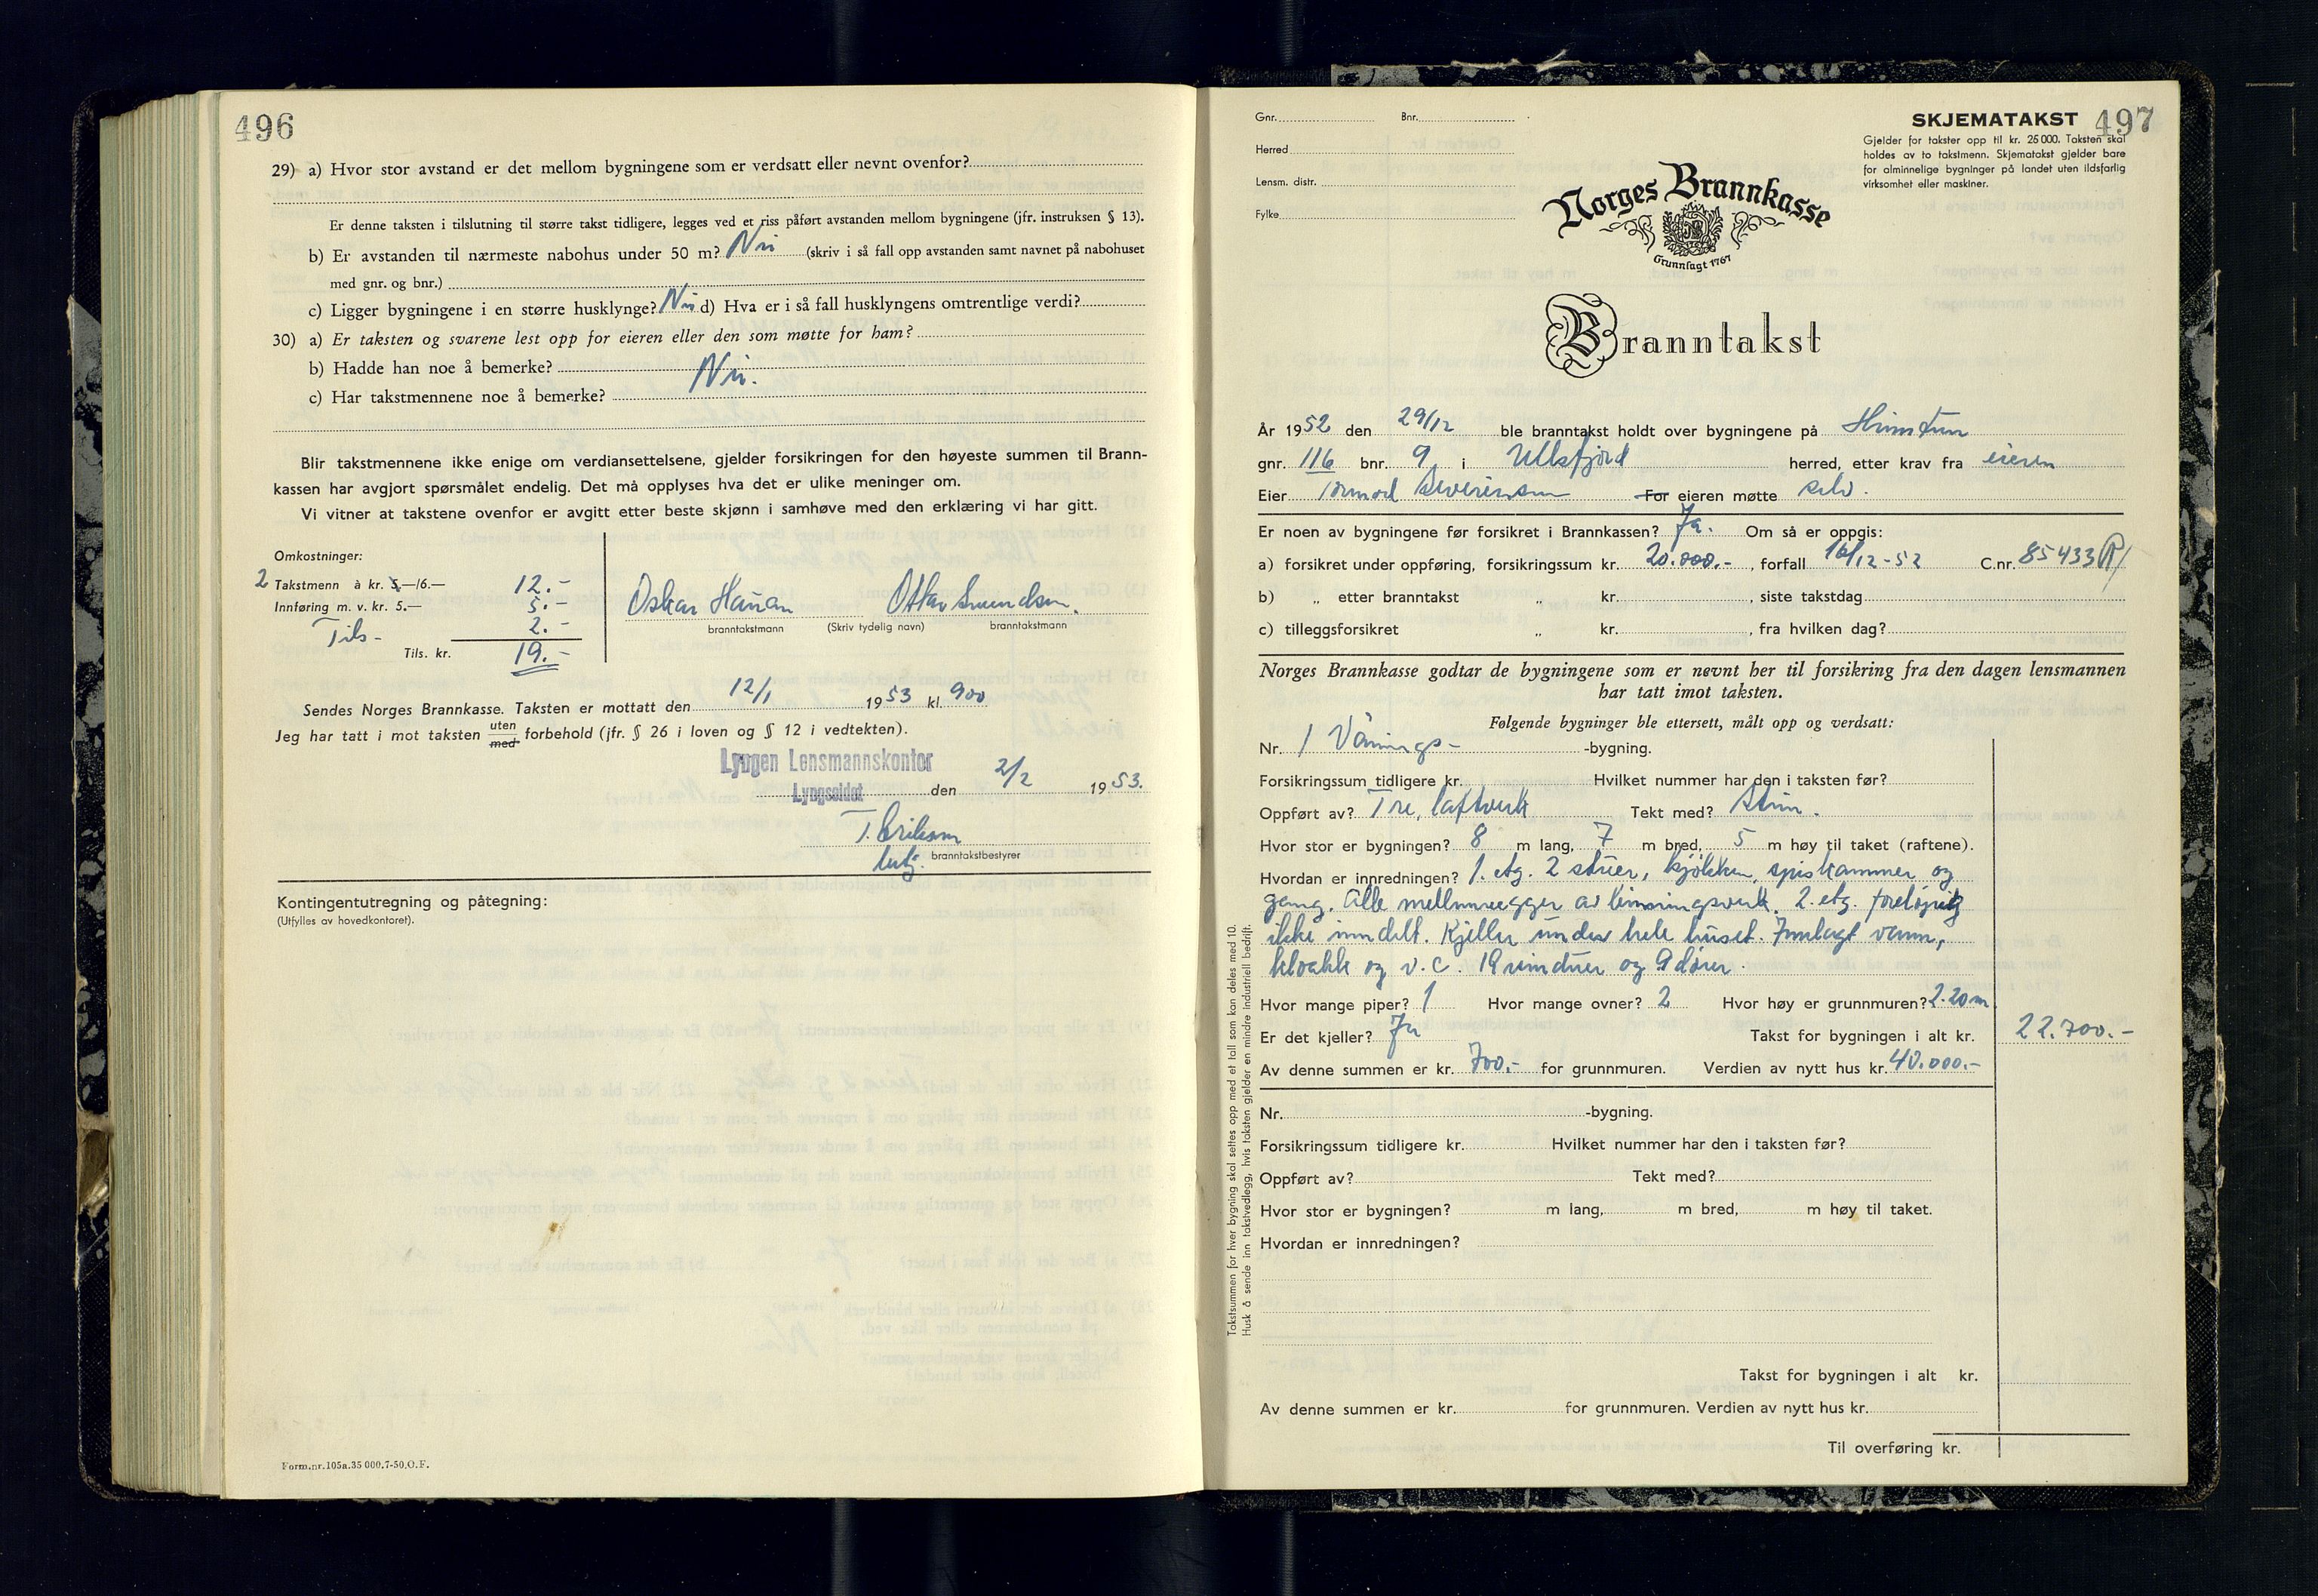 496
29) a) Hvor stor avstand er det mellom bygningene som er verdsatt eller nevnt ovenfor?
Er denne taksten i tilslutning til større takst tidligere, legges ved et riss påført avstanden mellom bygningene (jfr. instruksen § 13).
b) Er avstanden til nærmeste nabohus under 50 m? Nei (skriv i så fall opp avstanden samt navnet på nabohuset
med gnr. og bnr.)
c) Ligger bygningene i en større husklynge? Nei d) Hva er i så fall husklyngens omtrentlige verdi?
30) a) Er taksten og svarene lest opp for eieren eller den som møtte for ham?
b) Hadde han noe å bemerke? Nei.
c) Har takstmennene noe å bemerke?
Blir takstmennene ikke enige om verdiansettelsene, gjelder forsikringen for den høyeste summen til Brann-
kassen har avgjort spørsmålet endelig. Det må opplyses hva det er ulike meninger om.
Vi vitner at takstene ovenfor er avgitt etter beste skjønn i samhøve med den erklæring vi har gitt.
Omkostninger:
2 Takstmenn à kr. 5,—/6.— 12.-
Innføring m. v. kr. 5.— 5.-
Tils- 2.-
Tils. kr. 19.-
Oskar Hansen Ottar Svendsen.
branntakstmann (Skriv tydelig navn) branntakstmann
Sendes Norges Brannkasse. Taksten er mottatt den 12/1 1953 kl. 900
Jeg har tatt i mot taksten uten med forbehold (jfr. § 26 i loven og § 12 i vedtekten).
Lyngen Lensmannskontor
Lyngseidet den 2/2 1953.
T. Eriksen
betj. branntakstbestyrer
Kontingentutregning og påtegning:
(Utfylles av hovedkontoret).
Form.nr.105a.35 000.7-50.O.F.
Gnr. Bnr.
Herred
Lensm. distr.
Fylke
SKJEMATAKST 497
Gjelder for takster opp til kr. 25 000. Taksten skal
holdes av to takstmenn. Skjematakst gjelder bare
for alminnelige bygninger på landet uten ildsfarlig
virksomhet eller maskiner.
Norges Brannkasse
Grunnlagt 1767
Branntakst
År 1952 den 29/12 ble branntakst holdt over bygningene på
gnr. 116 bnr. 9 i Ullsfjord herred, etter krav fra eieren
Eier Tormod Severinsen For eieren møtte selv.
Er noen av bygningene før forsikret i Brannkassen? Ja. Om så er oppgis:
a) forsikret under oppføring, forsikringssum kr. 20.000.- , forfall 16/12-52 C.nr. 85433
b) „ etter branntakst „ kr. , siste takstdag
c) tilleggsforsikret „ kr. , fra hvilken dag?
Norges Brannkasse godtar de bygningene som er nevnt her til forsikring fra den dagen lensmannen
har tatt imot taksten.
Følgende bygninger ble ettersett, målt opp og verdsatt:
Nr. 1 Vånings- -bygning.
Forsikringssum tidligere kr. Hvilket nummer har den i taksten før?
Oppført av? Tre, laftverk Tekt med?
Hvor stor er bygningen? 8 m lang, 7 m bred, 5 m høy til taket (raftene).
Hvordan er innredningen? 1. etg. 2 stuer, kjøkken, spiskammer og
gang. Alle mellomvegger av binningsverk. 2. etg. foreløpig
ikke inndelt. Kjeller under hele huset. Innlagt vann,
kloakk og v.c. 19 vinduer og 9 dører.
Hvor mange piper? 1 Hvor mange ovner? 2 Hvor høy er grunnmuren? 2.20m.
Er det kjeller? Ja Takst for bygningen i alt kr. 22.700.-
Av denne summen er kr. 700.- for grunnmuren. Verdien av nytt hus kr. 40.000.-
Nr. -bygning.
Forsikringssum tidligere kr. Hvilket nummer har den i taksten før?
Oppført av? Tekt med?
Hvor stor er bygningen? m lang, m bred, m høy til taket.
Hvordan er innredningen?
Takst for bygningen i alt kr.
Av denne summen er kr. for grunnmuren. Verdien av nytt hus kr.
Til overføring kr.
Takstsummen for hver bygning skal settes opp med et tall som kan deles med 10.
Husk å sende inn takstvedlegg, hvis taksten gjelder en mindre industriell bedrift.